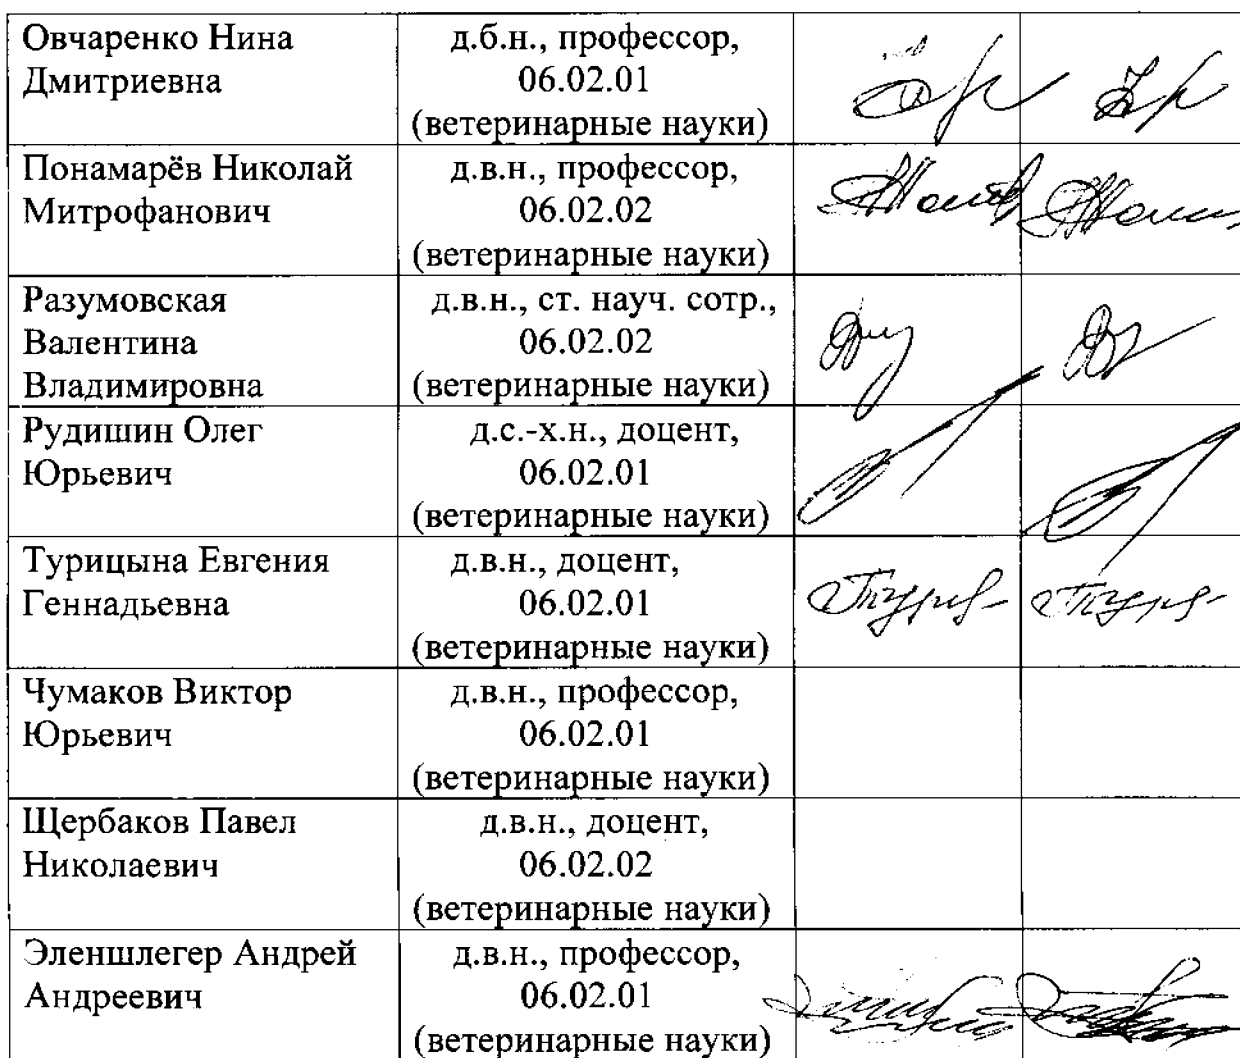 Овчаренко Нина
Дмитриевна
д.б.н., профессор,
06.02.01
(ветеринарные науки)
Понамарёв Николай
Митрофанович
д.в.н., профессор,
06.02.02
(ветеринарные науки)
Разумовская
Валентина
Владимировна
д.в.н., ст. науч. сотр.,
06.02.02
(ветеринарные науки)
Рудишин Олег
Юрьевич
д.с.-х.н., доцент,
06.02.01
(ветеринарные науки)
Турицына Евгения
Геннадьевна
д.в.н., доцент,
06.02.01
(ветеринарные науки)
Чумаков Виктор
Юрьевич
д.в.н., профессор,
06.02.01
(ветеринарные науки)
Щербаков Павел
Николаевич
д.в.н., доцент,
06.02.02
(ветеринарные науки)
Эленшлегер Андрей
Андреевич
д.в.н., профессор,
06.02.01
(ветеринарные науки)